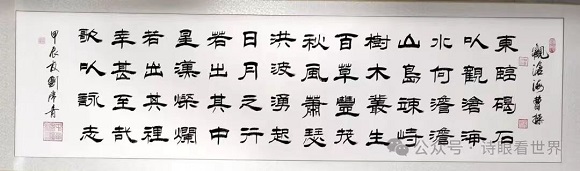 觀滄海 曹操
東臨碣石
以觀滄海
水何澹澹
山島竦峙
樹木叢生
百草豐茂
秋風蕭瑟
洪波湧起
日月之行
若出其中
星漢燦爛
若出其裡
幸甚至哉
歌以詠志
甲辰 劉 青
公众号 · 诗眼看世界